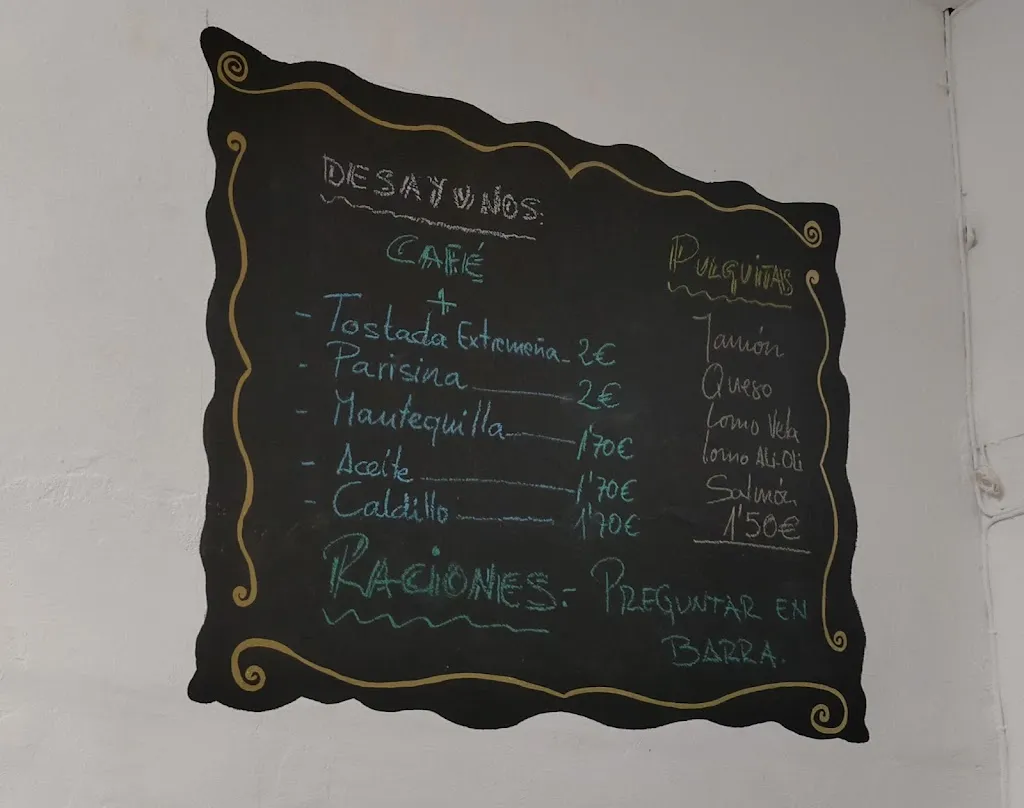 DESAYUNOS.
CAFÉ
+
- Tostada Extremeña - 2€
- Parisina 2€
- Mantequilla 1'70€
- Aceite 1'70€
- Caldillo 1'70€
PULGUITAS
Jamón
Queso
Lomo Veta
Lomo ALI-OLI
Salmón
1'50€
RACIONES.- PREGUNTAR EN
BARRA.